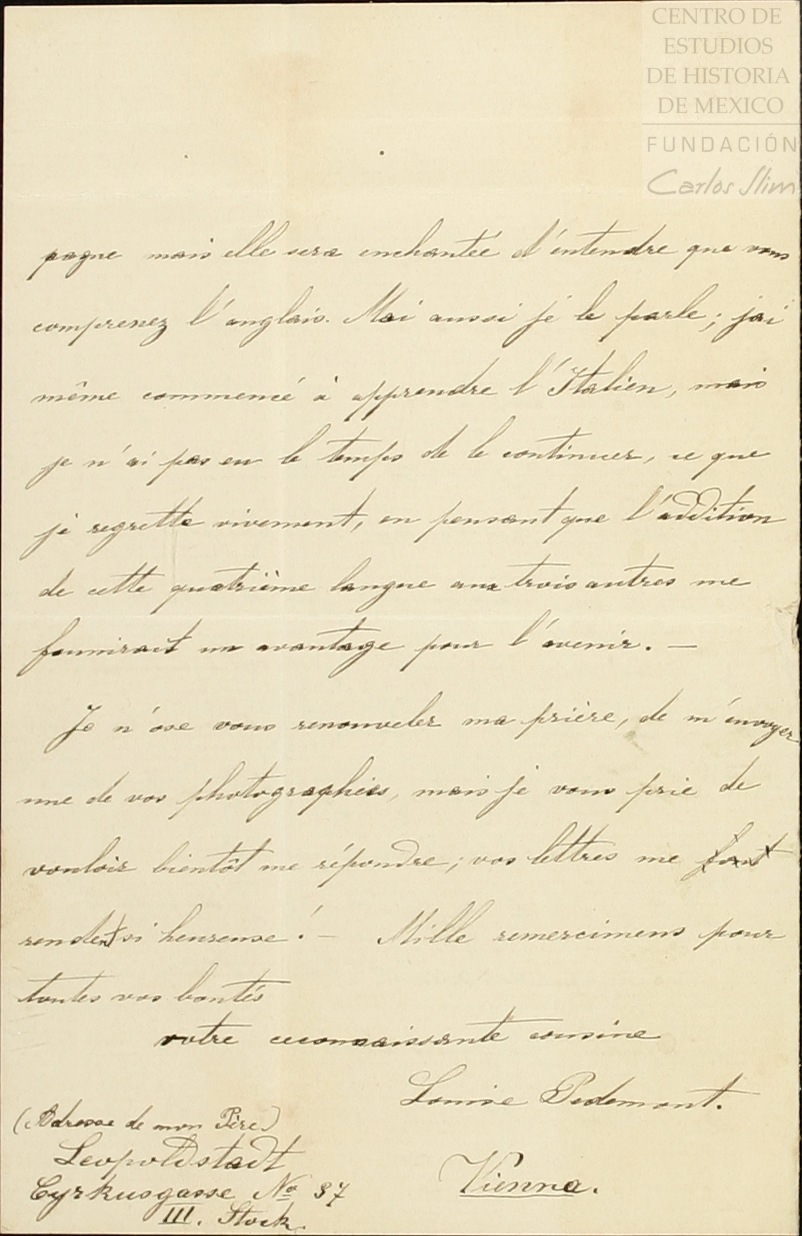 CENTRO DE
ESTUDIOS
DE HISTORIA
DE MEXICO
FUNDACIÓN
Carlos Slim
pagne mais elle sera enchantée d'entendre que vous
comprenez l'anglais. Moi aussi je le parle; jai
même commencé à apprendre l'Italien, mais
je n'ai pas eu le temps de le continuer, ce que
je regrette vivement, en pensant que l'addition
de cette quatrième langue aux trois autres me
fournirait un avantage pour l'avenir. —
Je n'ose vous renouveler ma prière, de m'envoyer
une de vos photographies, mais je vous prie de
vouloir bientôt me répondre; vos lettres me font
rendent si heureuse! — Mille remercimens pour
toutes vos bontés
votre reconnaissante cousine
Louise Pedemont.
(Adresse de mon Père)
Leopoldstadt
Cyrkusgasse No 37
III. Stock.
Vienna.